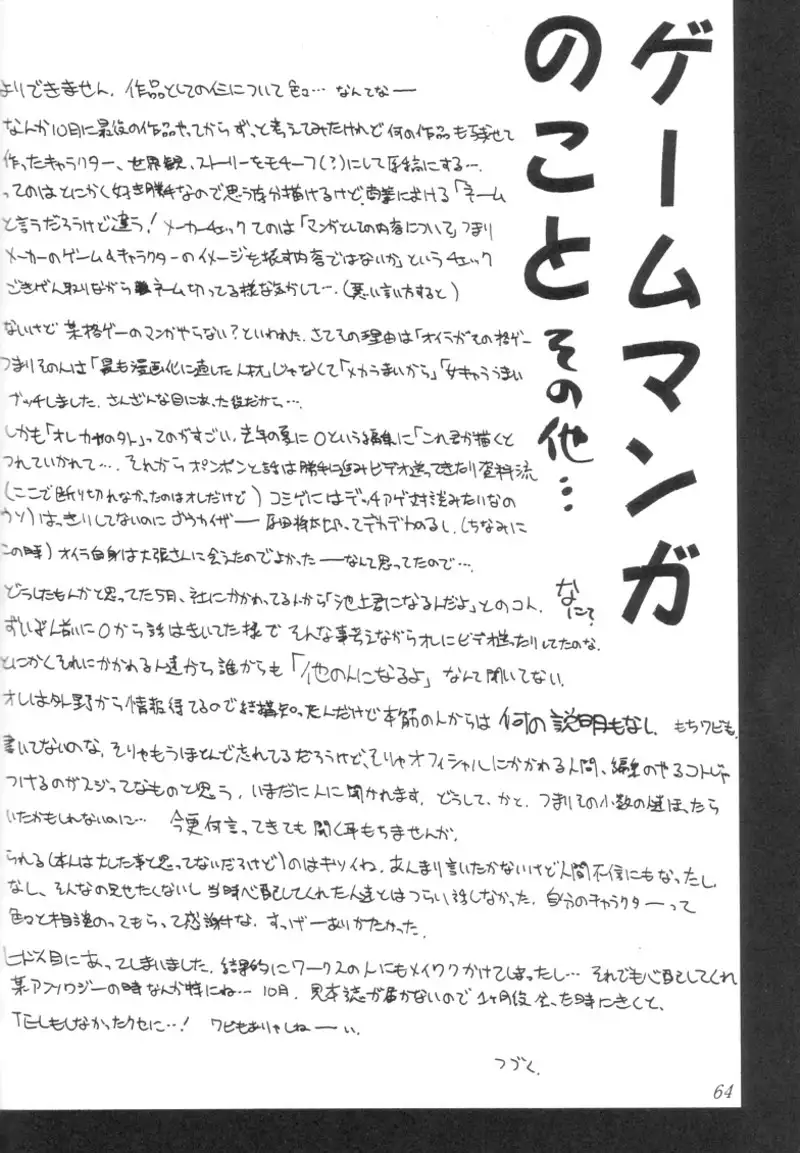 ゲームマンガ
のこと その他…
よりできません。作品としての仁について色々… なんてなー
なんか10月に最後の作品やってからずっと考えてみたけれど何の作品も残せて
作ったキャラクター、世界観、ストーリーをモチーフ(?)にして原稿にする…。
ってのはとにかく好き勝手なので思う存分描けるけど、商業における「ネーム
と言うだろうけど違う! メーカーチェックてのは「マンガとしての内容について」つまり
メーカーのゲーム&キャラクターのイメージを壊す内容ではないか」というチェック
ごきげん取りながらネーム切ってる様な気がして…。(悪い言い方すると)
ないけど某格ゲーのマンガやらない?といわれた。さてその理由は「オイラがその格ゲー
つまりその人は「最も漫画化に適した人材」じゃなくて「メカうまいから」「女キャラうまい
ブッチしました。さんざんな目にあった後だから…。
しかも「オレ カヤのソト」ってのがすごい。去年の夏にOという編集に「これ君が描くと
つれていかれて…。それからポンポンと話は勝手に進みビデオ送ってきたり資料流
(ここで断り切れなかったのはオレだけど) コミゲにはデッチアゲ対談みたいなの
ウソ)はっきりしてないのにゴウカイザー 原田将太郎ってデカデカのるし、(ちなみに
この時) オイラ自身は大張さんに会えたのでよかったーなんて思ってたので…。
どうしたもんかと思ってた5月、社にかかわってる人から「池上君になるんだよ」とのコト。 なにィ?
ずいぶん前にOから話はきいてた様で そんな事考えながらオレにビデオ送ったりしてたのな。
とにかくそれにかかわる人達から誰からも「他の人になるよ」なんて聞いてない。
オレは外野から情報得てるので結構知ってたんだけど本筋の人からは 何の説明もなし。 もちワビも。
書いてないのな。そりゃもうほとんど忘れてるだろうけど、そりゃオフィシャルにかかわる人間、編集のやるコトじゃ
つけるのがスジってなものと思う。いまだに人に聞かれます。どうして、かと。つまりその小数の人達ほったら
いたかもしれないのに… 今更何言ってきても聞く耳もちませんが。
られる(本人は大した事と思ってないだろけど)のはキツイね。あんまり言いたかないけど人間不信にもなったし
なし、そんなの見せたくないし 当時心配してくれた人達とはつらい話しなかった。自分のキャラクターって
色々と相談のってもらって感謝すな。すっげーありがたかった。
ヒドイ目にあってしまいました。結果的にワークスの人にもメイワクかけてしまったし… それでも心配してくれ
某アンソロジーの時なんか特にね… 10月。見本誌が届かないので1ヶ月後会った時にきくと、
TELもしなかったクセに…! ワビもありゃしねーい。
つづく。
64